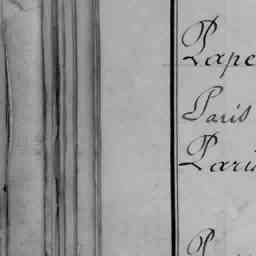 Pape
Paris
Paris
P